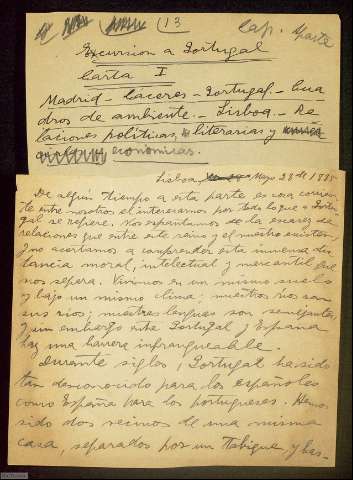 13
Cap. Aparte
Excursion a Portugal
Carta I
Madrid - Caceres - Portugal - Cua
dros de ambiente - Lisboa - Re
laciones políticas, literarias y
económicas.
Lisboa, Mayo 28 de 1885
De algún tiempo a esta parte es cosa corrien
te entre nosotros el interesarnos por todo lo que a Portu
gal se refiere. Nos espantamos de la escasez de
relaciones que entre este reino y el nuestro existen
y no acertamos a comprender esta inmensa dis
tancia moral, intelectual y mercantil que
nos separa. Vivimos en un mismo suelo
y bajo un mismo clima; nuestros ríos son
sus ríos; nuestras lenguas son semejantes,
y sin embargo entre Portugal y España
hay una barrera infranqueable.
Durante siglos, Portugal ha sido
tan desconocido para los españoles
como España para los portugueses. Hemos
sido dos vecinos de una misma
casa, separados por un tabique y has-